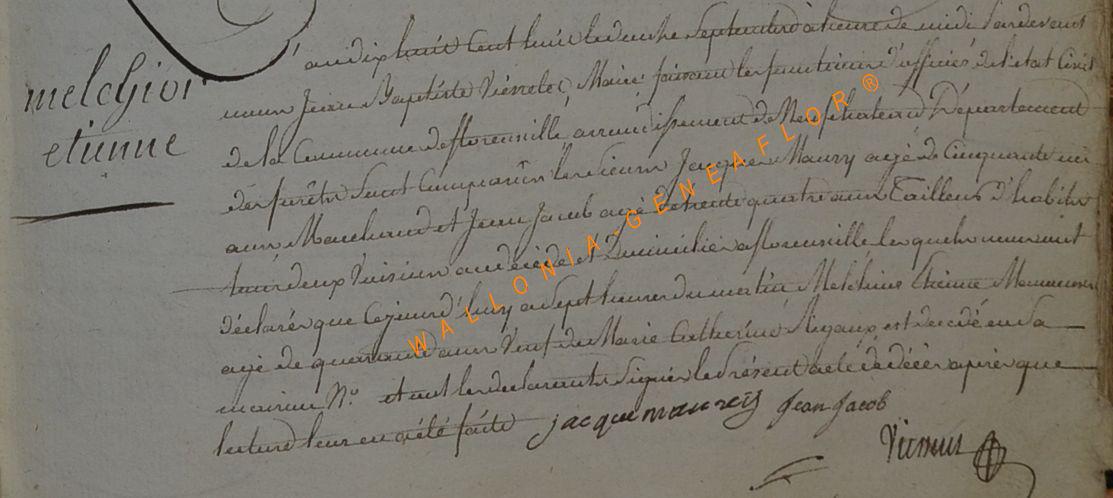 melchior
etienne
an dix huit cent huit le douze Septembre à heure de midi Pardevant
nous Jean Baptiste Maire faisant les fonctions d'officier de l'état Civil
de la Commune de florenville arrondissement de Neufchateau Département
des forêts Sont Comparûs les Sieurs Jacque Maury agé de Cinquante
ans Marchand et Jean Jacob agé de trente quatre ans Tailleur d'habits
tous deux Voisins au décédé et Domiciliés a florenville lesquels nous ont
déclaré que Cejourd'huy au Sept heures du matin Melchior Etienne
agé de quarante ans Veuf de Marie Catherine est decedé en Sa
maison N.o et ont les declarants Signés le Présent acte de décès après que
lecture leur en a été faite jacque maureij Jean Jacob
WALLONIA-GENEAFLOR®